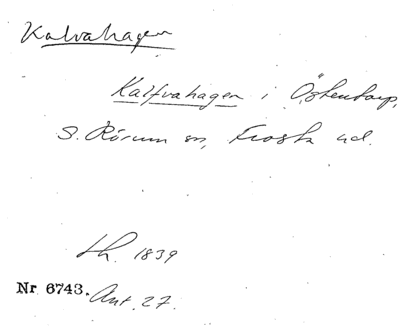 Kalvahagen
Kalfvahagen i Östentorp,
S. Rörum sn, Frosta hd.
lh. 1839
Nr 6743. Ant. 27.